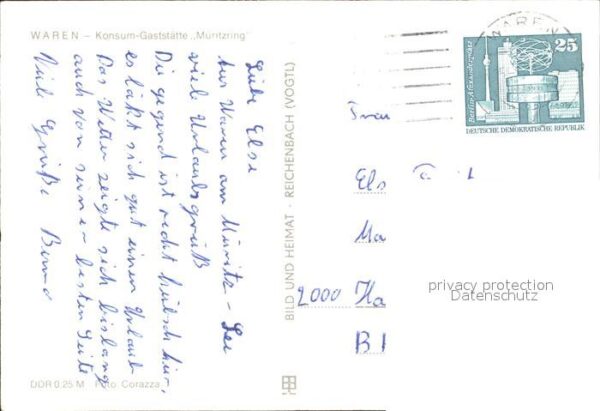 WAREN – Konsum-Gaststätte „Müritzring"
Liebe Else
Aus Waren am Müritz-See
viel Urlaubsgrüß
Die gegend ist recht hübsch hier,
es läßt sich gut einen Urlaub
Das Wetter zeigte sich bislang
auch von seiner besten Seite
Viele Grüße Benno
DDR 0.25 M Foto: Corazza
BILD UND HEIMAT · REICHENBACH (VOGTL)
WAREN
25
Berlin-Alexanderplatz
DEUTSCHE DEMOKRATISCHE REPUBLIK
Frau
Els
Ma
2000 Ha
B1
privacy protection
Datenschutz